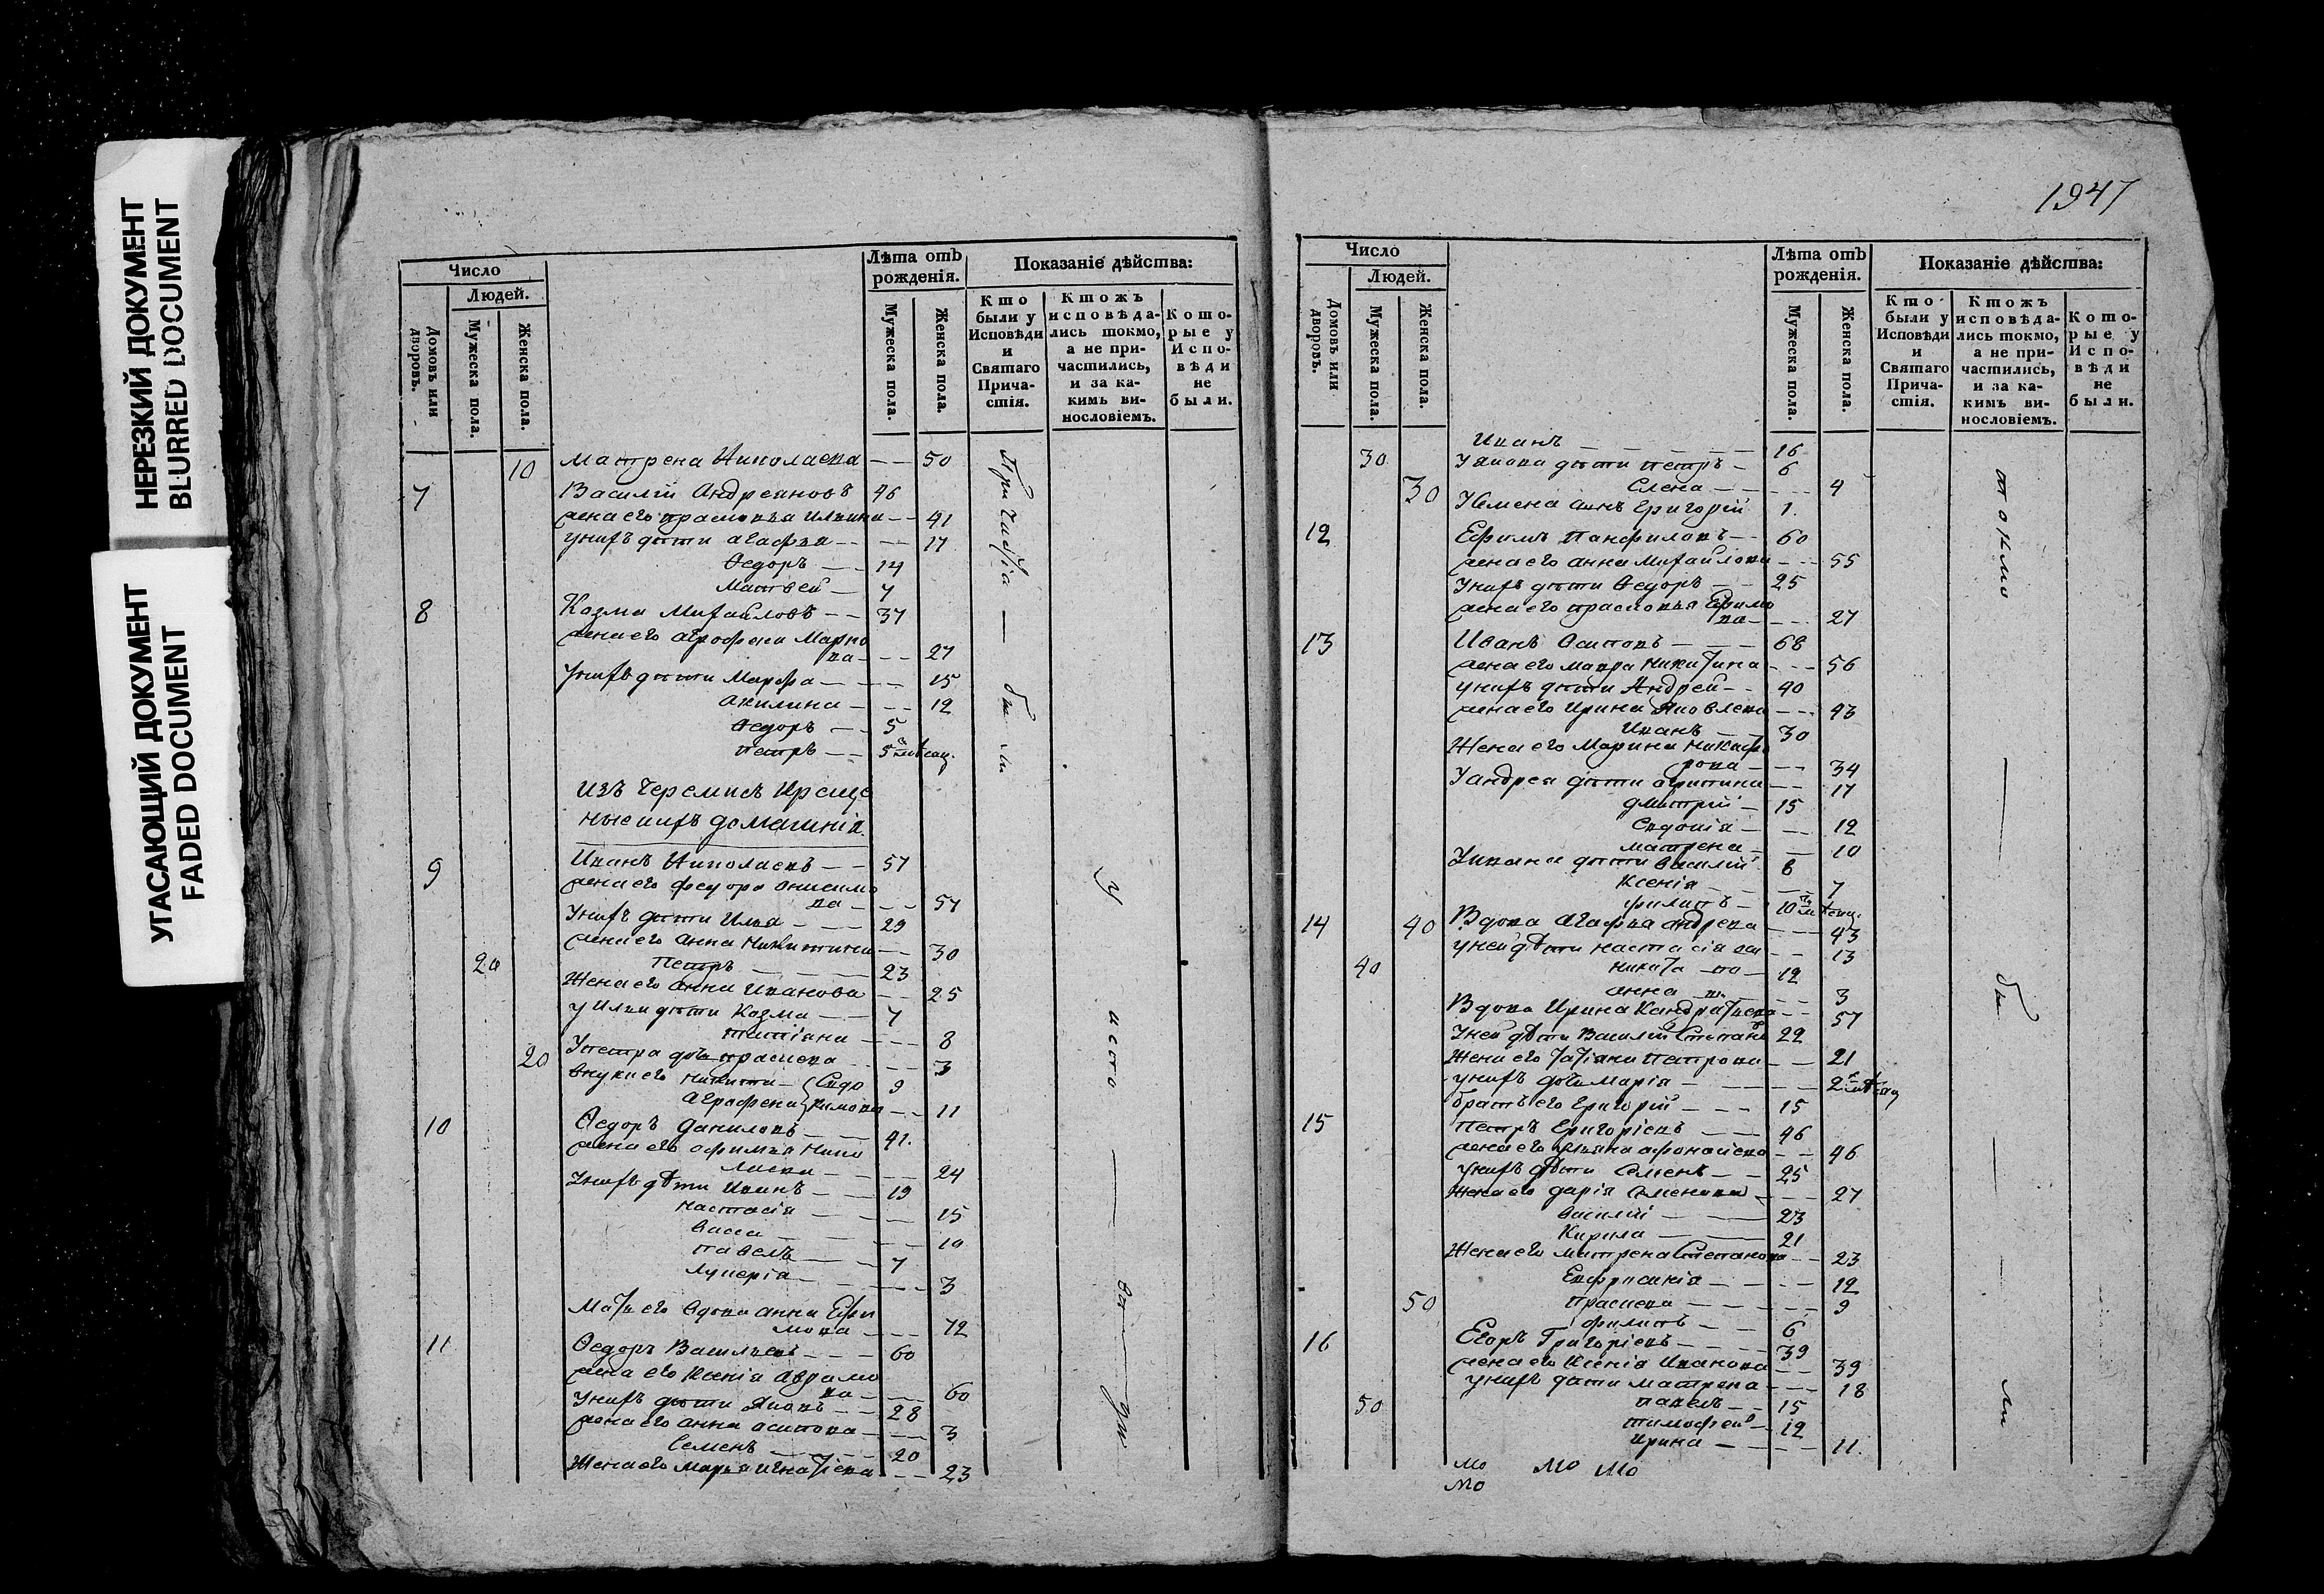 НЕРЕЗКИЙ ДОКУМЕНТ
BLURRED DOCUMENT
УГАСАЮЩИЙ ДОКУМЕНТ
FADED DOCUMENT
Число
Людей.
Домовъ или дворовъ.
Мужеска пола.
Женска пола.
Лѣта отъ рожденія.
Мужеска пола.
Женска пола.
Показаніе дѣйства:
Кто были у Исповѣди и Святаго Прича-стія.
Ктожъ исповѣда-лись токмо, а не при-частились, и за ка-кимъ ви-нословіемъ.
Кото-рые у Испо-вѣди не были.
10 Матрена Николаева — — 50
7 Василій Андреяновъ 46
жена его прасковья — — 41
у нихъ дѣти агафья — — — 17
Ѳедоръ — — 14
Матвей — 7
8 Козма Михайловъ — — 37
жена его агрофена Марко
ва — — — 27
у нихъ дѣти Марфа — — — 15
акилина — — — 12
Ѳедоръ — — 5
петръ — — 5
изъ черемисъ креще
ные
9 Иванъ Николаевъ — — 57
жена его федора онисимо
ва — — — 57
у нихъ дѣти Илья — — — 29
жена его анна Никитина — — 30
20 Петръ — — — — 23
Жена его анна Иванова — — 25
у Ильи дѣти Козма — — 7
татіана — — — 8
20 У петра дочь прасковa — — — 3
внуки его никита 9
аграфена — — 11
10 Ѳедоръ Даниловъ — — 41.
жена его офимья Нико
лаева — — — 24
У нихъ дѣти Иванъ — — 19
настасія — — — 15
васса — — — — 10
павелъ — — — 7
Лукерія — — — — 3
Мать его вдова анна Ефи
мова — — — 72
11 Ѳедоръ Васильевъ — — — 60
жена его Ксенія
ва — — — 60
У нихъ дѣти Яковъ — — 28
жена его анна осипова — — — 3
Семенъ — — — — 20
Жена его марья игнатіева — — 23
1947
Число
Людей.
Домовъ или дворовъ.
Мужеска пола.
Женска пола.
Лѣта отъ рожденія.
Мужеска пола.
Женска пола.
Показаніе дѣйства:
Кто были у Исповѣди и Святаго Прича-стія.
Ктожъ исповѣда-лись токмо, а не при-частились, и за ка-кимъ ви-нословіемъ.
Кото-рые у Испо-вѣди не были.
Иванъ — — — — — 16
30 У якова дѣти петръ — 6
30 Елена — — — — 4
У семена сынъ Григорій 1.
12 Ефимъ Панфиловъ — — 60
жена его анна Михайлова — — 55
У нихъ дѣти Ѳедоръ — — 25
жена его прасковья Ефимо
ва — — — 27
13 Иванъ Осиповъ — — — 68
жена его мавра никитина — — — 56
у нихъ дѣти Андрей — — 40
жена его Ирина Яковлева — — — 43
Иванъ — — 30
Жена его Марина Никифо
рова — — — 34
У андрея дѣти агрипина — — 17
дмитрій — 15
Евдокія — — — 12
матрена — — 10
У ивана дѣти василій 8
Ксенія — — — 7
филипъ — 10
14 40 Вдова Агафья андреева — — — 43
у ней дѣти настасія — — 13
40 никита — 12
анна — — — 3
Вдова Ирина Кандратьева — — 57
У ней дѣти Василій Степановъ 22
Жена его татіана петрова — — 21
у нихъ дочь марія — — — — 2
братъ его григорій — — — 15
15 Петръ Григоріевъ — — 46
жена его афонасіева — — 46
у нихъ дѣти Семенъ — — 25
Жена его дарія Семенова — — — 27
василій — — — 23
Кирила — — — 21
Жена его матрена Степанова — — 23
Евфросинія — — — — 12
50 Прасковa — — — — — 9
филипъ — — — 6
16 Егоръ Григоріевъ — — — — 39
жена его Ксенія Иванова — — 39
у нихъ дѣти матрена — — — 18
50 павелъ — — 15
тимофей — 12
Ирина — — — — 11.
Мо Мо Мо
Мо